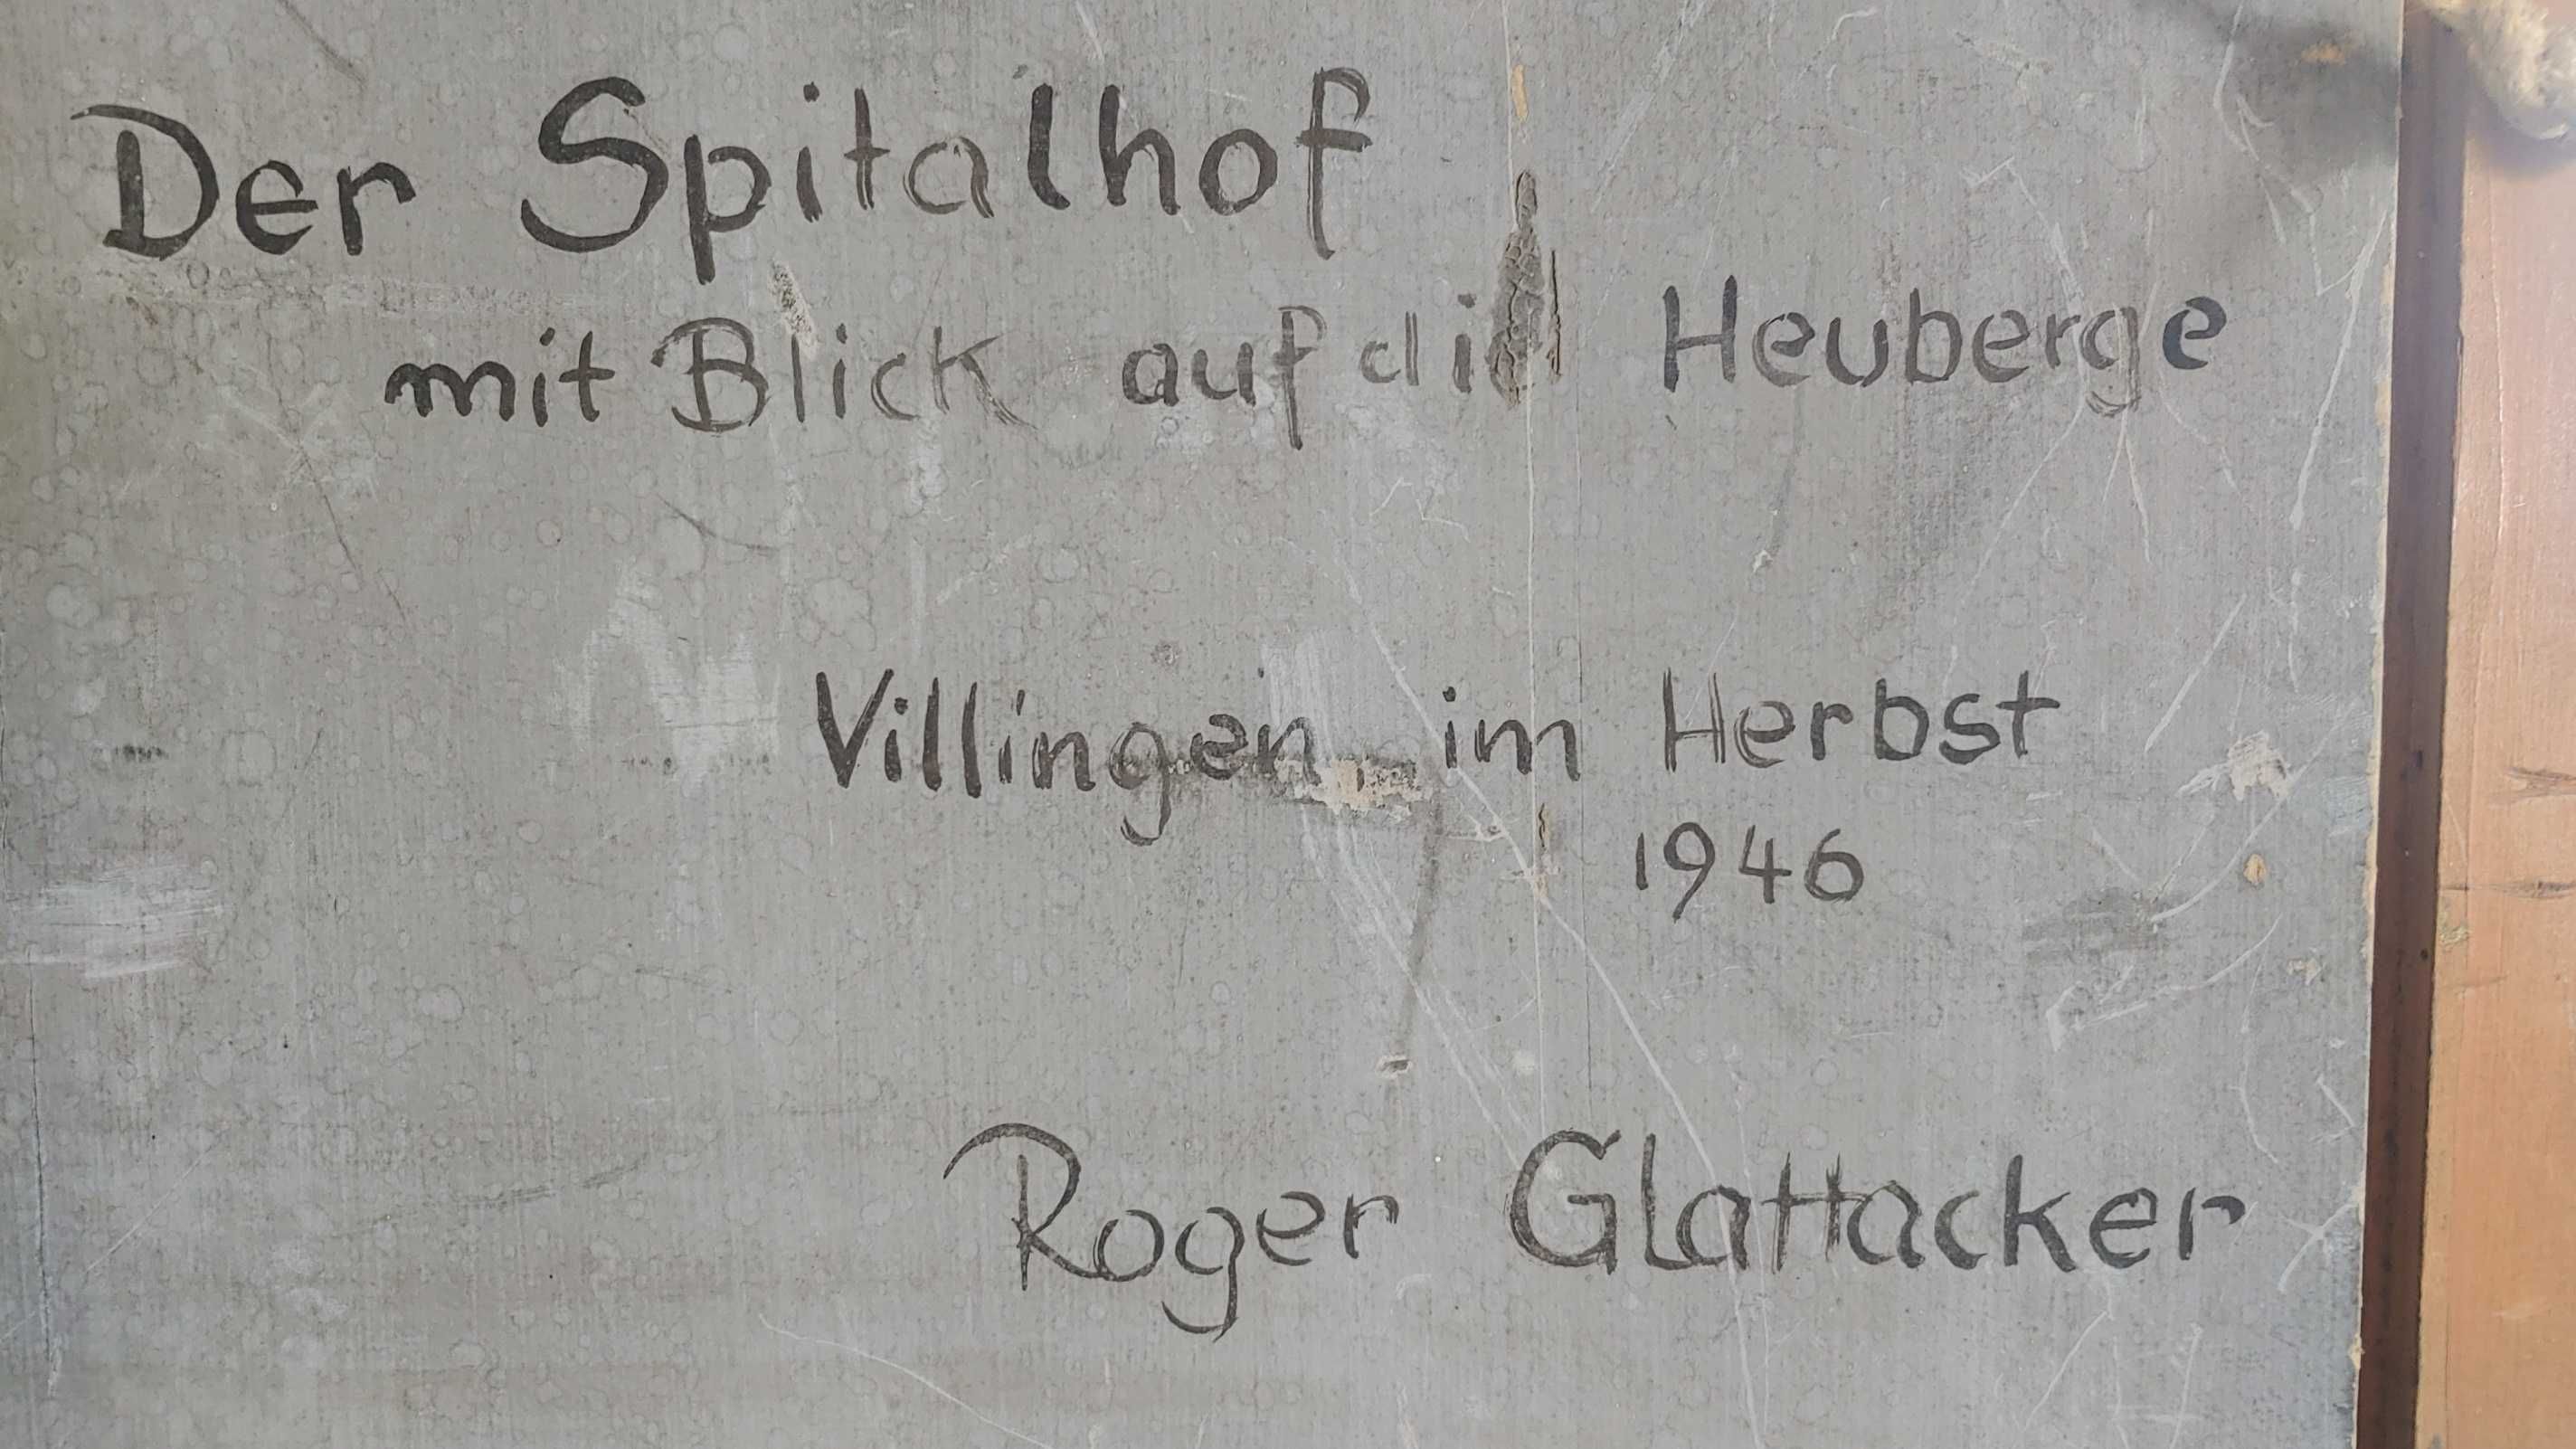 Der Spitalhof
mit Blick auf die Heuberge
Villingen im Herbst
1946
Roger Glattacker